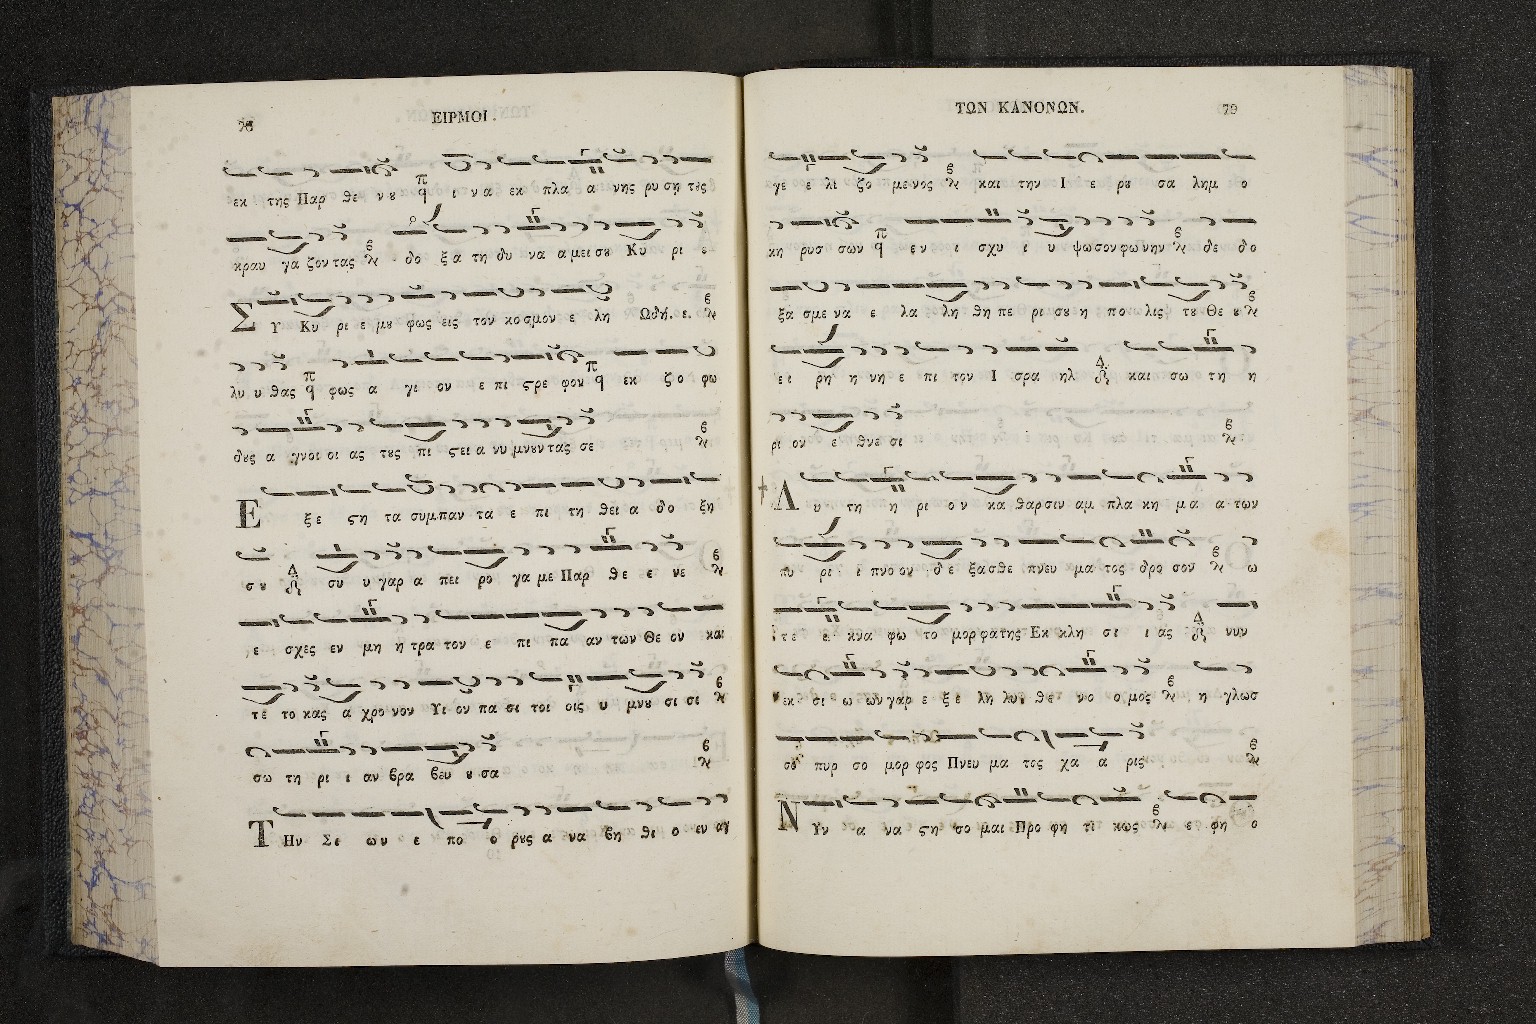 78
ΕΙΡΜΟΙ.
εκ της Παρ θε ν ου π ϥ ι ν α εκ πλα α νης ρυ ση τȣς
κραυ γα ζον τας ϐ δο ξ α τη δυ να α μει σȣ Κυ ρι ε
Σ Υ Κυ ρι ε μȣ φως εις τον κο σμον ε λη Ωδή. ε. ϐ
λυ υ θας π ϥ φως α γι ον ε πι ςρε φον π ϥ εκ ζ ο φω
δȣς α γνοι οι ας τȣς πι ςει α νυ μνȣν τας σε ϐ
Ε ξε ςη τα συμπαν τα ε πι τη θει α δο ξη
σȣ Δ συ υ γαρ α πει ρο γα με Παρ θε ε νε ϐ
ε σχες εν μη η τρα τον ε πι πα αν των Θε ον και
τε το κας α χρο νον Υι ον πα σι τοι οις υ μνȣ σι σι ϐ
σω τη ρι ι αν βρα βευ ȣ σα ϐ
Τ Ην Σε ων ε πο ο ρȣς α να βη θι ο εν αγ
ΤΩΝ ΚΑΝΟΝΩΝ.
79
γε ε λι ζο με νος ϐ και την Ι ε ρȣ σα λημ ο
κη ρυσ σων π ϥ ε ν ι σχυ ι υ ψωσον φωνην ϐ δε δο
ξα σμε να ε λα λη θη πε ρι σȣ η πο λις τȣ Θε ȣ ϐ
ει ρη η νη ε πι τον Ι σρα ηλ Δ και σω τη η
ρι ον ε θνε σι ϐ
Λ υ τη η ρι ο ν κα θαρσιν αμ πλα κη μα α των
πυ ρι ι πνο ον δε ξασθε πνευ μα τος δρο σον ϐ ω
τε ε κνα φω το μορ φα της Εκ κλη σι ι ας Δ νυν
εκ σι ω ων γαρ ε ξε λη λυ θε νο ο μος ϐ η γλωσ
σο πυρ σο μορ φος Πνευ μα τος χα α ρις ϐ
Ν Υν α να ςη σο μαι Προ φη τι κως ϐ ε φη ο